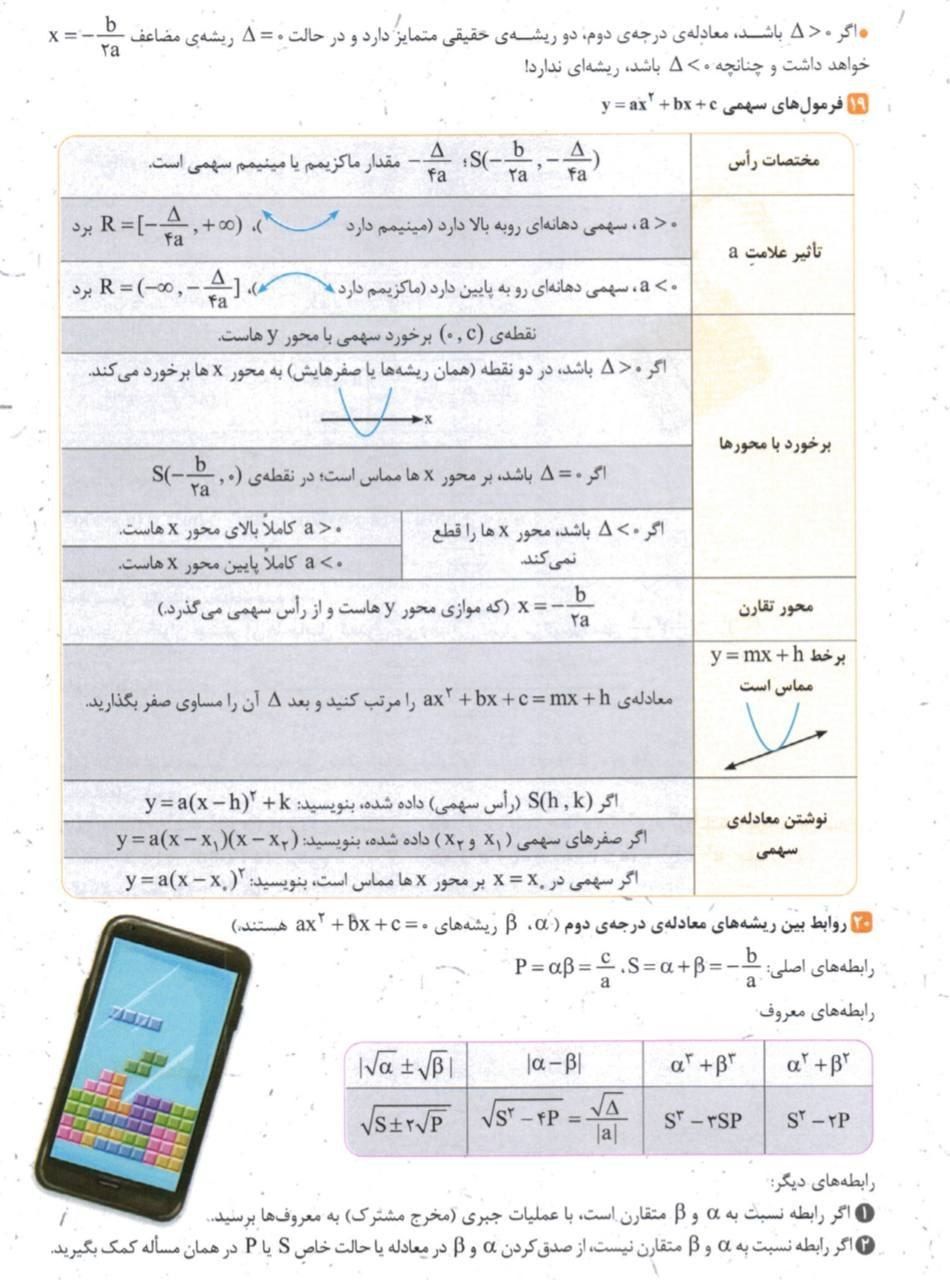 • اگر Δ > ۰ باشــد، معادله‌ی درجه‌ی دوم، دو ریشــه‌ی حقیقی متمایز دارد و در حالت Δ = ۰ ریشه‌ی مضاعف x = −b/۲a
خواهد داشت و چنانچه Δ < ۰ باشد، ریشه‌ای ندارد!
۱۹ فرمول‌های سهمی y = ax² + bx + c
مختصات رأس
S(−b/۲a, −Δ/۴a)؛ −Δ/۴a مقدار ماکزیمم یا مینیمم سهمی است.
تأثیر علامتِ a
a > ۰، سهمی دهانه‌ای روبه بالا دارد (مینیمم دارد)، R = [−Δ/۴a, +∞) برد
a < ۰، سهمی دهانه‌ای رو به پایین دارد (ماکزیمم دارد)، R = (−∞, −Δ/۴a] برد
برخورد با محورها
نقطه‌ی (۰, c) برخورد سهمی با محور y هاست.
اگر Δ > ۰ باشد، در دو نقطه (همان ریشه‌ها یا صفرهایش) به محور x ها برخورد می‌کند.
x
اگر Δ = ۰ باشد، بر محور x ها مماس است؛ در نقطه‌ی S(−b/۲a, ۰)
اگر Δ < ۰ باشد، محور x ها را قطع
نمی‌کند.
a > ۰ کاملاً بالای محور x هاست.
a < ۰ کاملاً پایین محور x هاست.
محور تقارن
x = −b/۲a (که موازی محور y هاست و از رأس سهمی می‌گذرد.)
برخط y = mx + h
مماس است
معادله‌ی ax² + bx + c = mx + h را مرتب کنید و بعد Δ آن را مساوی صفر بگذارید.
نوشتن معادله‌ی
سهمی
اگر S(h, k) (رأس سهمی) داده شده، بنویسید: y = a(x − h)² + k
اگر صفرهای سهمی (x₁ و x₂) داده شده، بنویسید: y = a(x − x₁)(x − x₂)
اگر سهمی در x = x₀ بر محور x ها مماس است، بنویسید: y = a(x − x₀)²
۲۰ روابط بین ریشه‌های معادله‌ی درجه‌ی دوم (α، β ریشه‌های ax² + bx + c = ۰ هستند.)
رابطه‌های اصلی: S = α + β = −b/a، P = αβ = c/a
رابطه‌های معروف
α² + β² | α³ + β³ | |α − β| | |√α ± √β|
S² − ۲P | S³ − ۳SP | √(S² − ۴P) = √Δ/|a| | √(S ± ۲√P)
رابطه‌های دیگر:
۱ اگر رابطه نسبت به α و β متقارن است، با عملیات جبری (مخرج مشترک) به معروف‌ها برسید.
۲ اگر رابطه نسبت به α و β متقارن نیست، از صدق کردن α و β در معادله یا حالت خاصِ S یا P در همان مسأله کمک بگیرید.